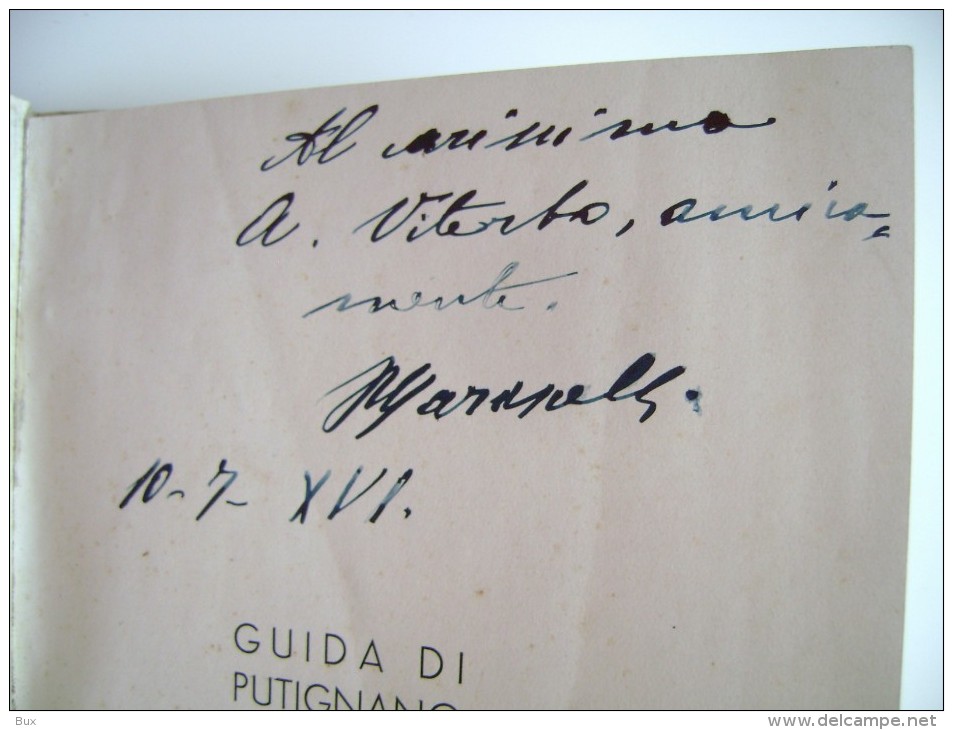 Al carissimo
A. Viterbo, amica-
mente.
10-7- XVI.
GUIDA DI
PUTIGNANO
Bux
www.delcampe.net